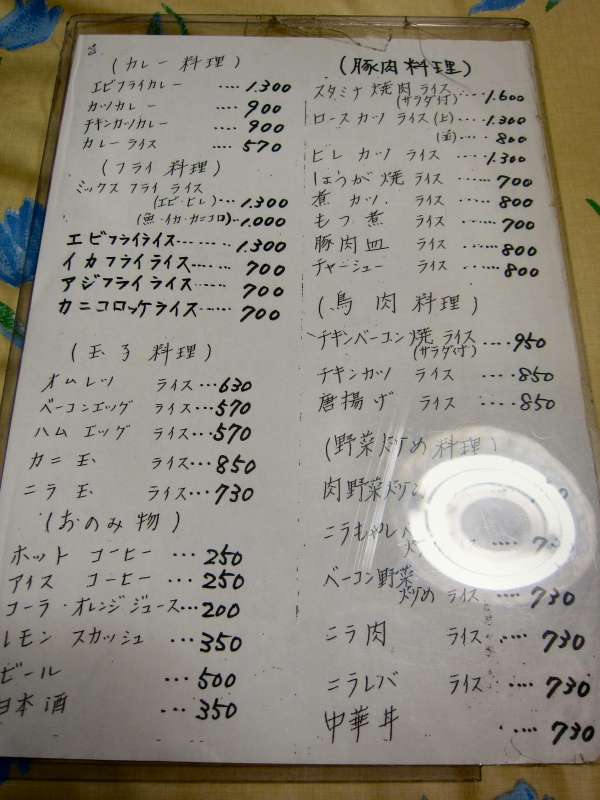 (カレー料理)
エビフライカレー ････ 1.300
カツカレー ････ 900
チキンカツカレー ････ 900
カレーライス ････ 570
(フライ料理)
ミックスフライライス
(エビ・ヒレ)･･･ 1.300
(魚・イカ・カニコロ)･･ 1.000
エビフライライス････････ 1.300
イカフライライス･･････ 700
アジフライライス･･････ 700
カニコロッケライス････ 700
(玉子料理)
オムレツ ライス･･･ 630
ベーコンエッグ ライス･･･ 570
ハムエッグ ライス･･･ 570
カニ玉 ライス･･･ 850
ニラ玉 ライス･･･ 730
(おのみ物)
ホット コーヒー ･･･ 250
アイス コーヒー ･･･ 250
コーラ・オレンジジュース･･･ 200
レモン スカッシュ ･･･ 350
ビール ･･･ 500
日本酒 ･･･ 350
(豚肉料理)
スタミナ焼肉ライス ･････ 1.600
(サラダ付)
ロースカツライス(上)････ 1.300
(並)･･･ 800
ヒレカツライス ･････ 1.300
しょうが焼ライス ･･････ 700
煮カツ ライス ･･････ 800
もつ煮 ライス ･･････ 700
豚肉皿 ライス ･･････ 800
チャーシュー ライス ･････ 800
(鳥肉料理)
チキンベーコン焼ライス ････ 950
(サラダ付)
チキンカツ ライス ･････ 850
唐揚げ ライス ･････ 850
(野菜炒め料理)
肉野菜炒め
ニラもやしレバー
炒
ベーコン野菜
炒めライス ････ 730
ニラ肉 ライス ･････ 730
ニラレバ ライス ････ 730
中華丼 ･････ 730